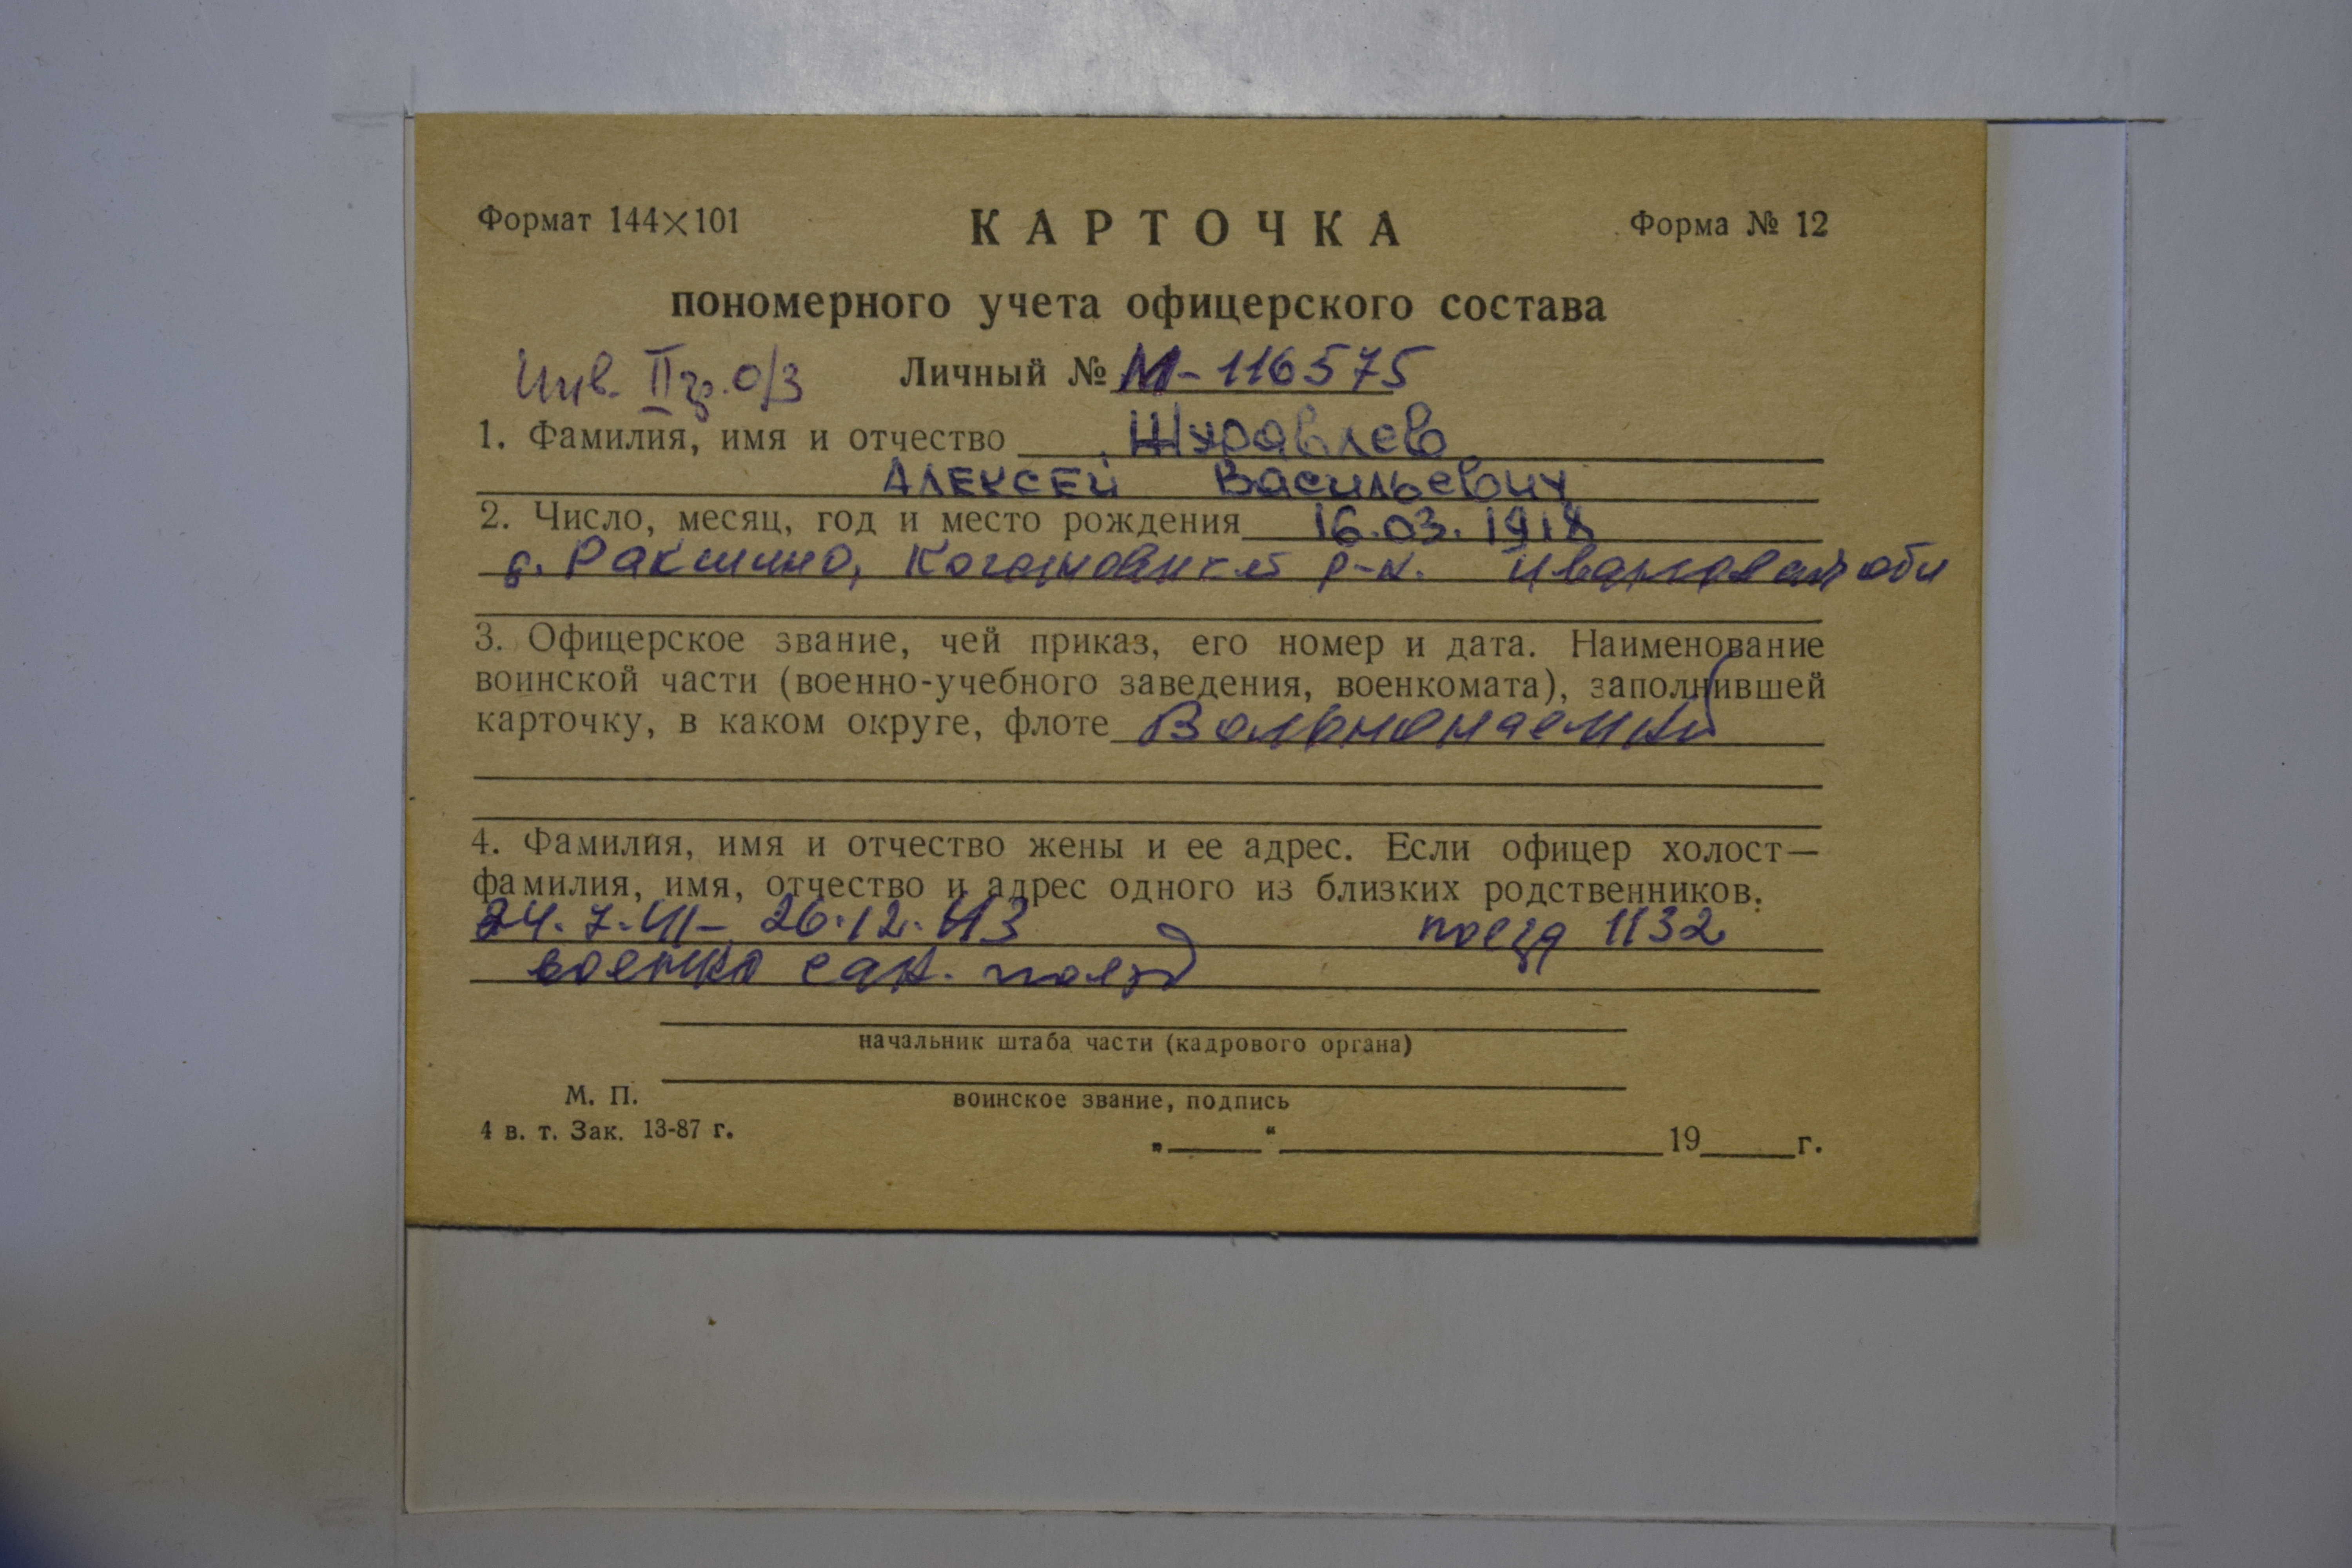 Формат 144×101
КАРТОЧКА
Форма № 12
пономерного учета офицерского состава
Инв. II гр. о/з
Личный № М-116575
1. Фамилия, имя и отчество Журавлев
Алексей Васильевич
2. Число, месяц, год и место рождения 16.03.1918
д. Ракшино, р-н. Ивановская обл
3. Офицерское звание, чей приказ, его номер и дата. Наименование
воинской части (военно-учебного заведения, военкомата), заполнившей
карточку, в каком округе, флоте Вольнонаемный
4. Фамилия, имя и отчество жены и ее адрес. Если офицер холост—
фамилия, имя, отчество и адрес одного из близких родственников.
24.7.41- 26.12.43 поезд 1132
военно сан. поезд
начальник штаба части (кадрового органа)
М. П.
воинское звание, подпись
4 в. т. Зак. 13-87 г.
„ “ 19 г.